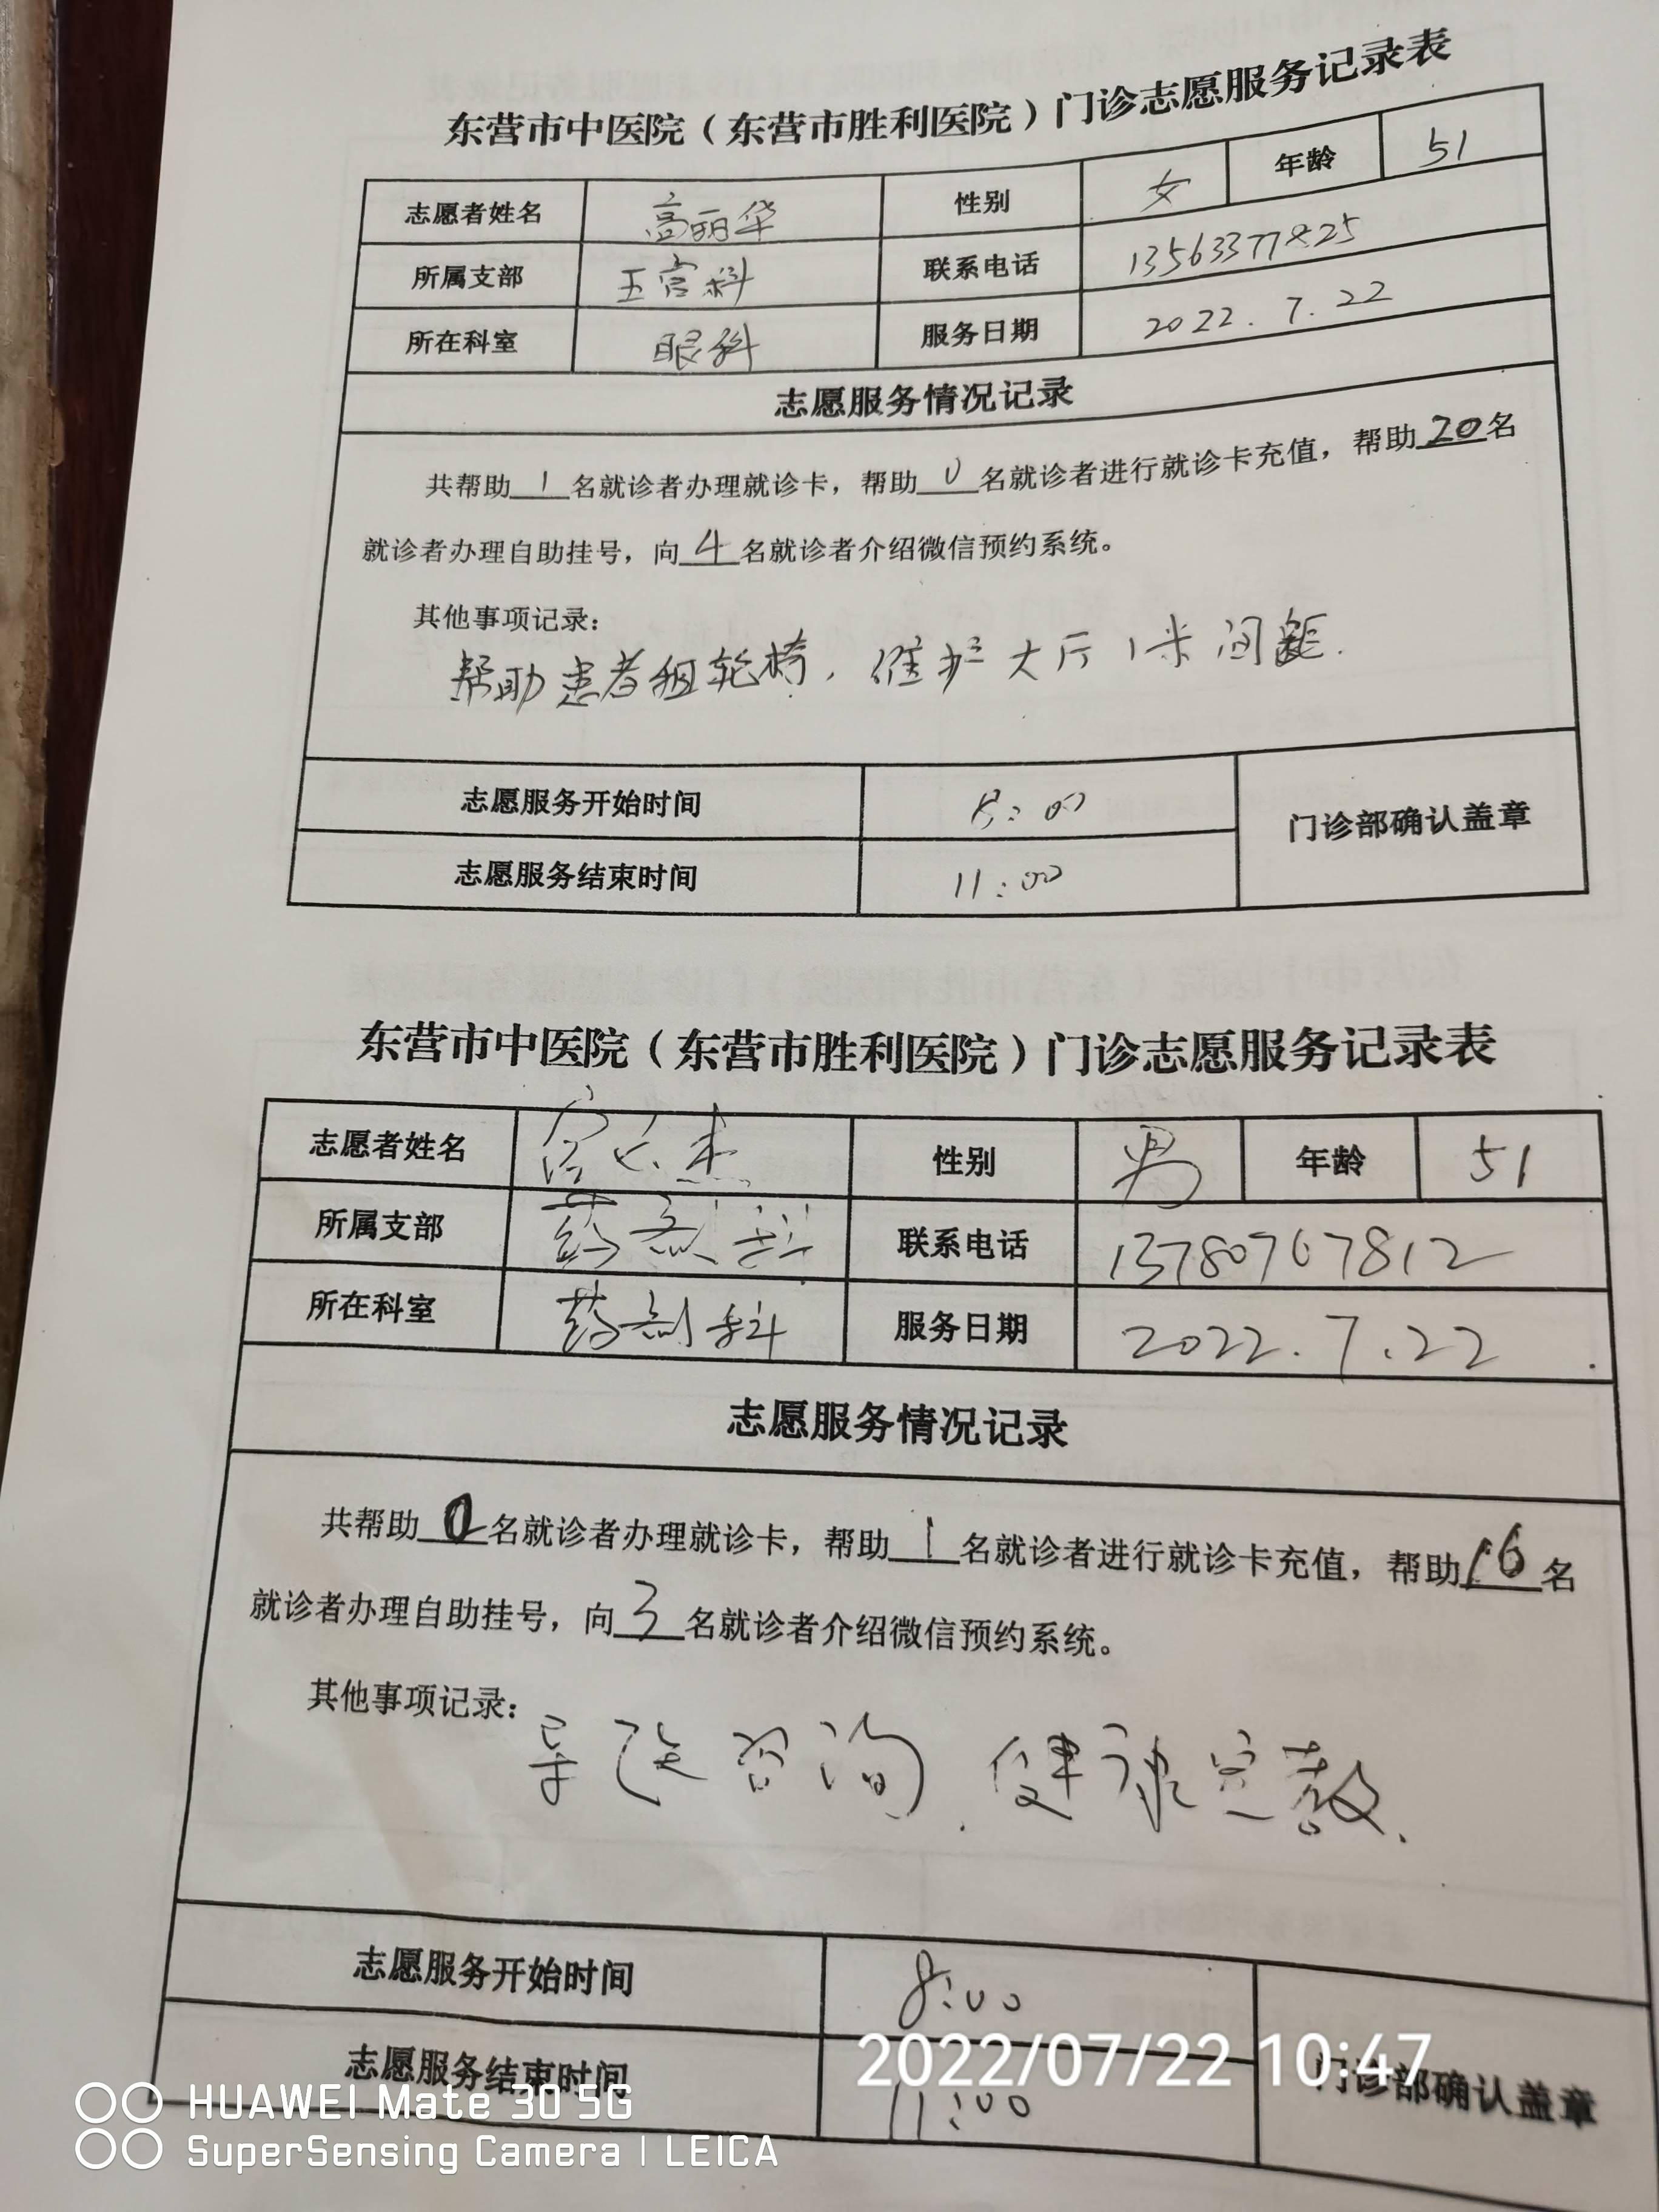 东营市中医院（东营市胜利医院）门诊志愿服务记录表
志愿者姓名 高丽华 性别 女 年龄 51
所属支部 五官科 联系电话 13563377825
所在科室 眼科 服务日期 2022.7.22
志愿服务情况记录
共帮助1名就诊者办理就诊卡，帮助0名就诊者进行就诊卡充值，帮助20名
就诊者办理自助挂号，向4名就诊者介绍微信预约系统。
其他事项记录：
帮助患者租轮椅，维护大厅1米间距.
志愿服务开始时间 8:00
门诊部确认盖章
志愿服务结束时间 11:00
东营市中医院（东营市胜利医院）门诊志愿服务记录表
志愿者姓名 性别 男 年龄 51
所属支部 药剂科 联系电话 13780767812
所在科室 药剂科 服务日期 2022.7.22
志愿服务情况记录
共帮助0名就诊者办理就诊卡，帮助1名就诊者进行就诊卡充值，帮助16名
就诊者办理自助挂号，向3名就诊者介绍微信预约系统。
其他事项记录：
导医咨询.健康宣教.
志愿服务开始时间 8:00
2022/07/22 10:47
志愿服务结束时间 11:00 门诊部确认盖章
HUAWEI Mate 30 5G
SuperSensing Camera | LEICA